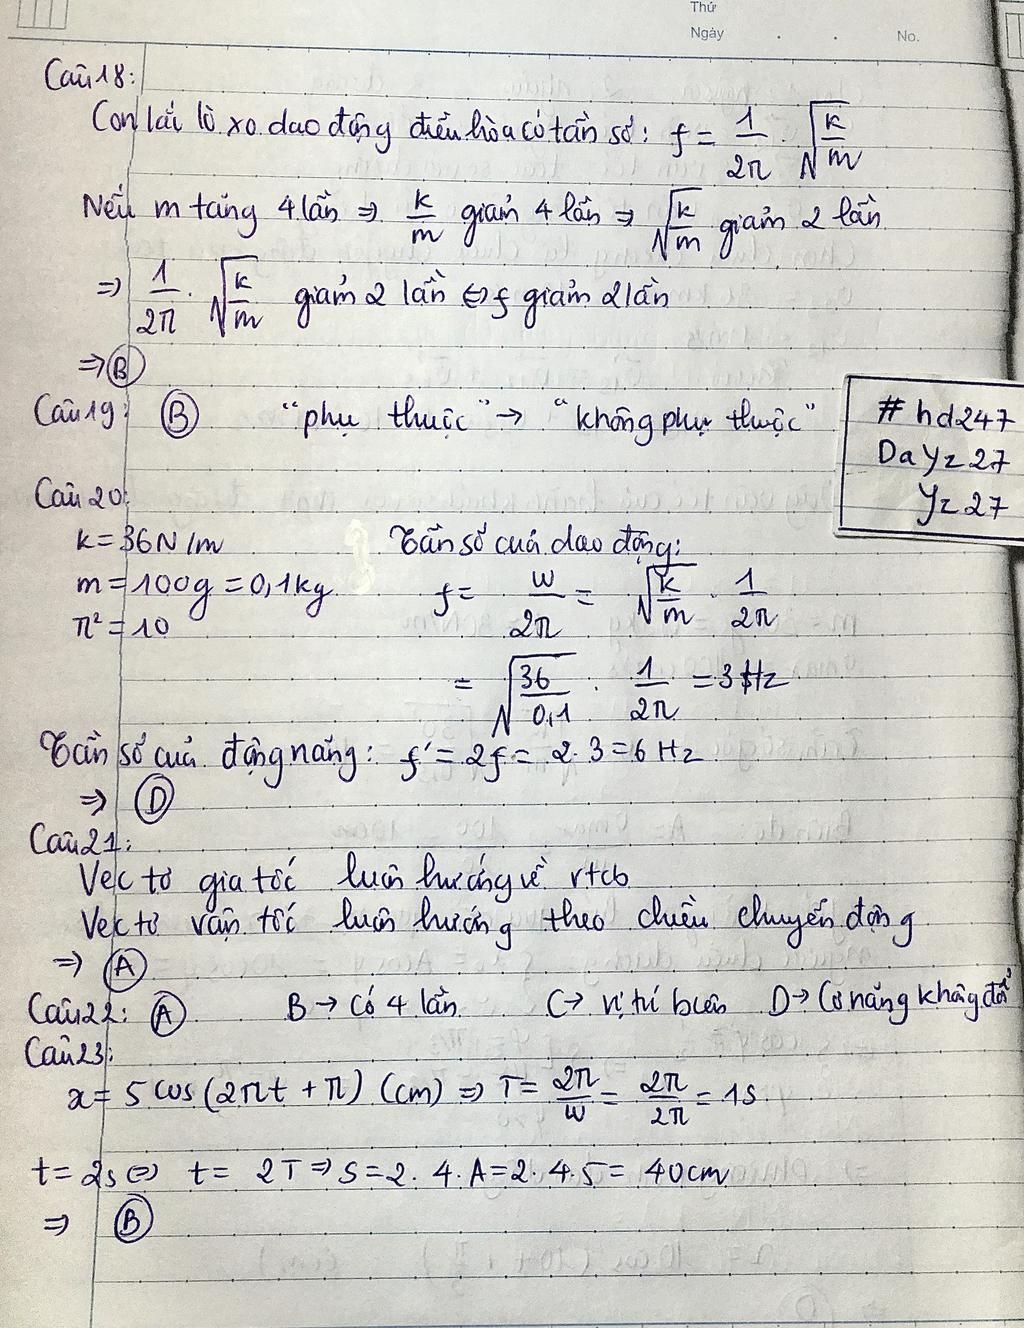 Thứ
Ngày . . No.
Câu 18:
Con lắc lò xo dao động điều hòa có tần số: f = 1/2π · √(k/m)
Nếu m tăng 4 lần ⇒ k/m giảm 4 lần ⇒ √(k/m) giảm 2 lần
⇒ 1/2π · √(k/m) giảm 2 lần ⇔ f giảm 2 lần
⇒ B
Câu 19: B "phụ thuộc" → "không phụ thuộc"
# hd247
DaYz27
Yz27
Câu 20:
k = 36N/m Tần số của dao động:
m = 100g = 0,1kg f = w/2π = √(k/m) · 1/2π
π² = 10
= √(36/0,1) · 1/2π = 3 Hz
Tần số của động năng: f' = 2f = 2.3 = 6 Hz
⇒ D
Câu 21:
Vec tơ gia tốc luôn hướng về vtcb
Vec tơ vận tốc luôn hướng theo chiều chuyển động
⇒ A
Câu 22: A B → Có 4 lần C → vị trí biên D → Cơ năng không đổi
Câu 23:
x = 5 cos (2πt + π) (cm) ⇒ T = 2π/w = 2π/2π = 1s
t = 2s ⇔ t = 2T ⇒ S = 2. 4. A = 2. 4. 5 = 40cm
⇒ B